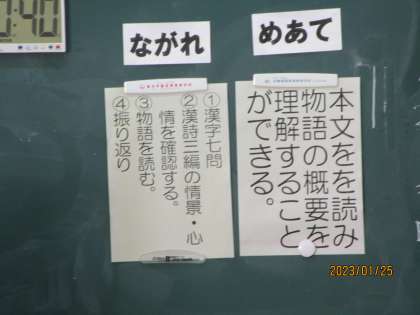 めあて
本文をを読み
物語の概要を
理解すること
ができる。
ながれ
①漢字七問
②漢詩三編の情景・心
情を確認する。
③物語を読む。
④振り返り
0:40
2023/01/25